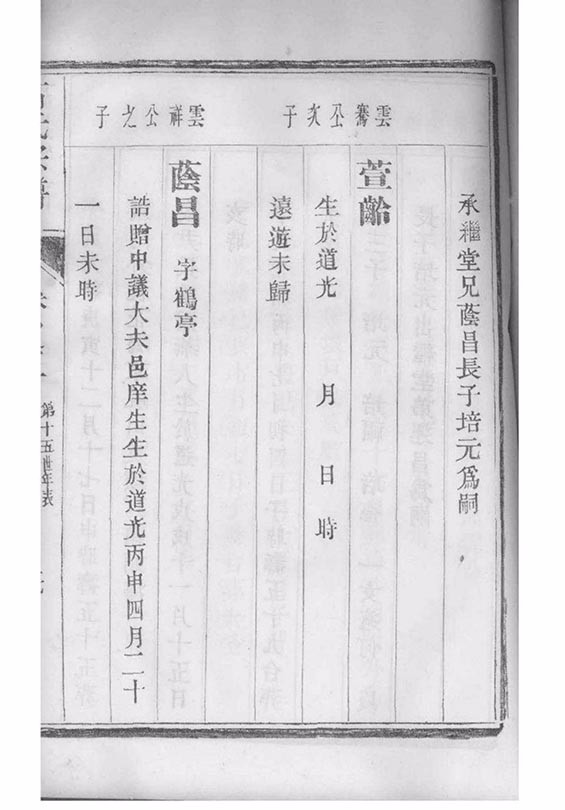 承繼堂兄蔭昌長子培元爲嗣
雲騫公次子
萱齡
生於道光 月 日 時
遠遊未歸
雲祥公之子
蔭昌 字鶴亭
誥贈中議大夫邑庠生生於道光丙申四月二十
一日未時
第十五世年表